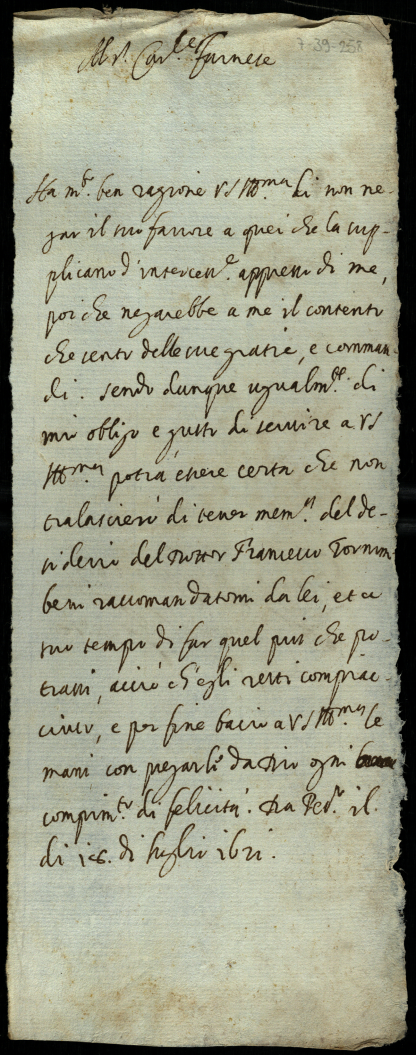 7-39-258
Al S.r Car.le Farnese
Ha m.to ben ragione VS Ill.ma di non ne-
gar il suo favore a quei che la sup-
plicano d'interced.e appresso di me,
poi che negarebbe a me il contento
che sento delle sue gratie, e comman-
di. Sendo dunque ugualm.te di
mio obligo e gusto di servire a VS
Ill.ma potrà essere certa che non
tralascierò di tener mem.a del de-
siderio del Dottor Francesco Tornim-
beni raccomandatomi da lei, et a
suo tempo di far quel più che po-
trassi, acciò ch'egli resti compiac-
ciuto, e per fine bacio a VS Ill.ma le
mani con pregarle da Dio ogni
compim.to di felicità. Da
di 18. di luglio 1621.